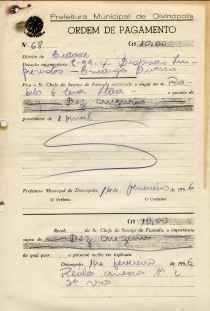 Prefeitura Municipal de Divinópolis
ORDEM DE PAGAMENTO
Nº 68 Cr$ 10,00
Distrito de Cidade
Dotação orçamentária 8-99-4 Despesas Im-
previstas - Encargos Diversos
Fica o Sr. Chefe do Serviço de Fazenda autorizado a pagar a
& Cia Ltda a quantia
de Dez cruzeiros
proveniente de
Prefeitura Municipal de Divinópolis, 16 de fevereiro de 1956
O Prefeito O Contador
Cr$ 10,00
Receb do Sr. Chefe do Serviço de Fazenda, a importância
supra de Dez cruzeiros
do qual pass o presente recibo em triplicata
Divinópolis, 16 de fevereiro de 1956